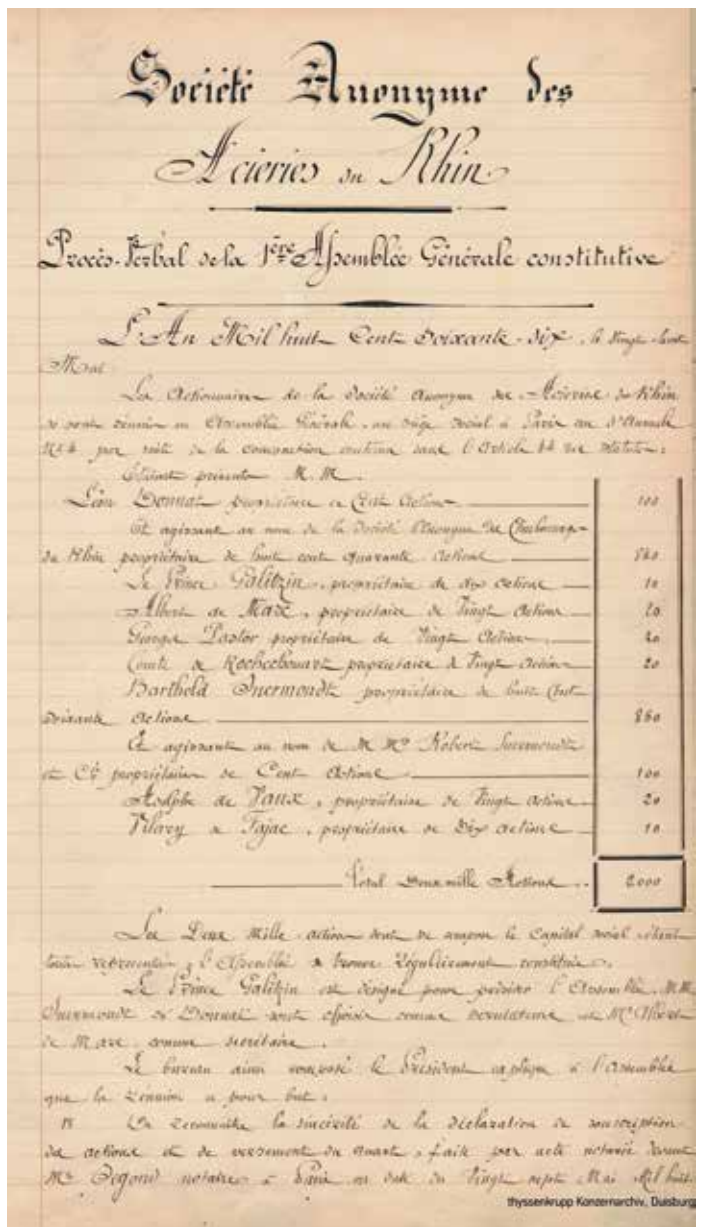 Société Anonyme des
Aciéries du Rhin
Procès-Verbal de la 1ère Assemblée Générale constitutive
L'An Mil huit Cent Soixante-dix, le Vingt-huit
Mai
Les Actionnaires de la Société Anonyme des Aciéries du Rhin
se sont réunis en Assemblée Générale, au siège social à Paris rue d'Aumale
No 4 par suite de la convocation contenue dans l'Article 44 des statuts:
Étaient présents M. M.
Léon Donnat propriétaire de Cent Actions 100
Et agissant au nom de la Société Anonyme des Charbonnages
du Rhin propriétaire de huit cent quarante actions 840
Le Prince Galitzin, propriétaire de dix actions 10
Albert de Mare, propriétaire de Vingt Actions 20
Georges Pastor propriétaire de Vingt Actions 20
Comte de Rochechouart propriétaire de Vingt Actions 20
Barthold Suermondt propriétaire de huit Cent
soixante Actions 860
Et agissant au nom de M Mrs Robert Suermondt
et Cie propriétaire de Cent Actions 100
Adolphe de Vaux, propriétaire de Vingt Actions 20
Vilerey de Fajac, propriétaire de Dix actions 10
Total Deux mille Actions 2000
Les Deux Mille action dont se compose le Capital social étant
toutes représentées, l'Assemblée se trouve régulièrement constituée.
Le Prince Galitzin est désigné pour présider l'Assemblée. M.M.
Suermondt et Donnat sont choisis comme scrutateurs et Mr Albert
de Mare comme secrétaire.
Le bureau ainsi composé le Président explique à l'Assemblée
que la réunion a pour but:
De reconnaître la sincérité de la déclaration de souscription
des actions et de versement du quart, faite par acte notarié devant
Me Segond notaire à Paris en date du Vingt sept Mai Mil huit
thyssenkrupp Konzernarchiv, Duisburg